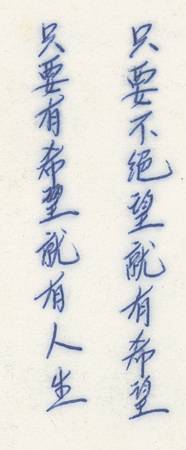 只要不绝望就有希望
只要有希望就有人生